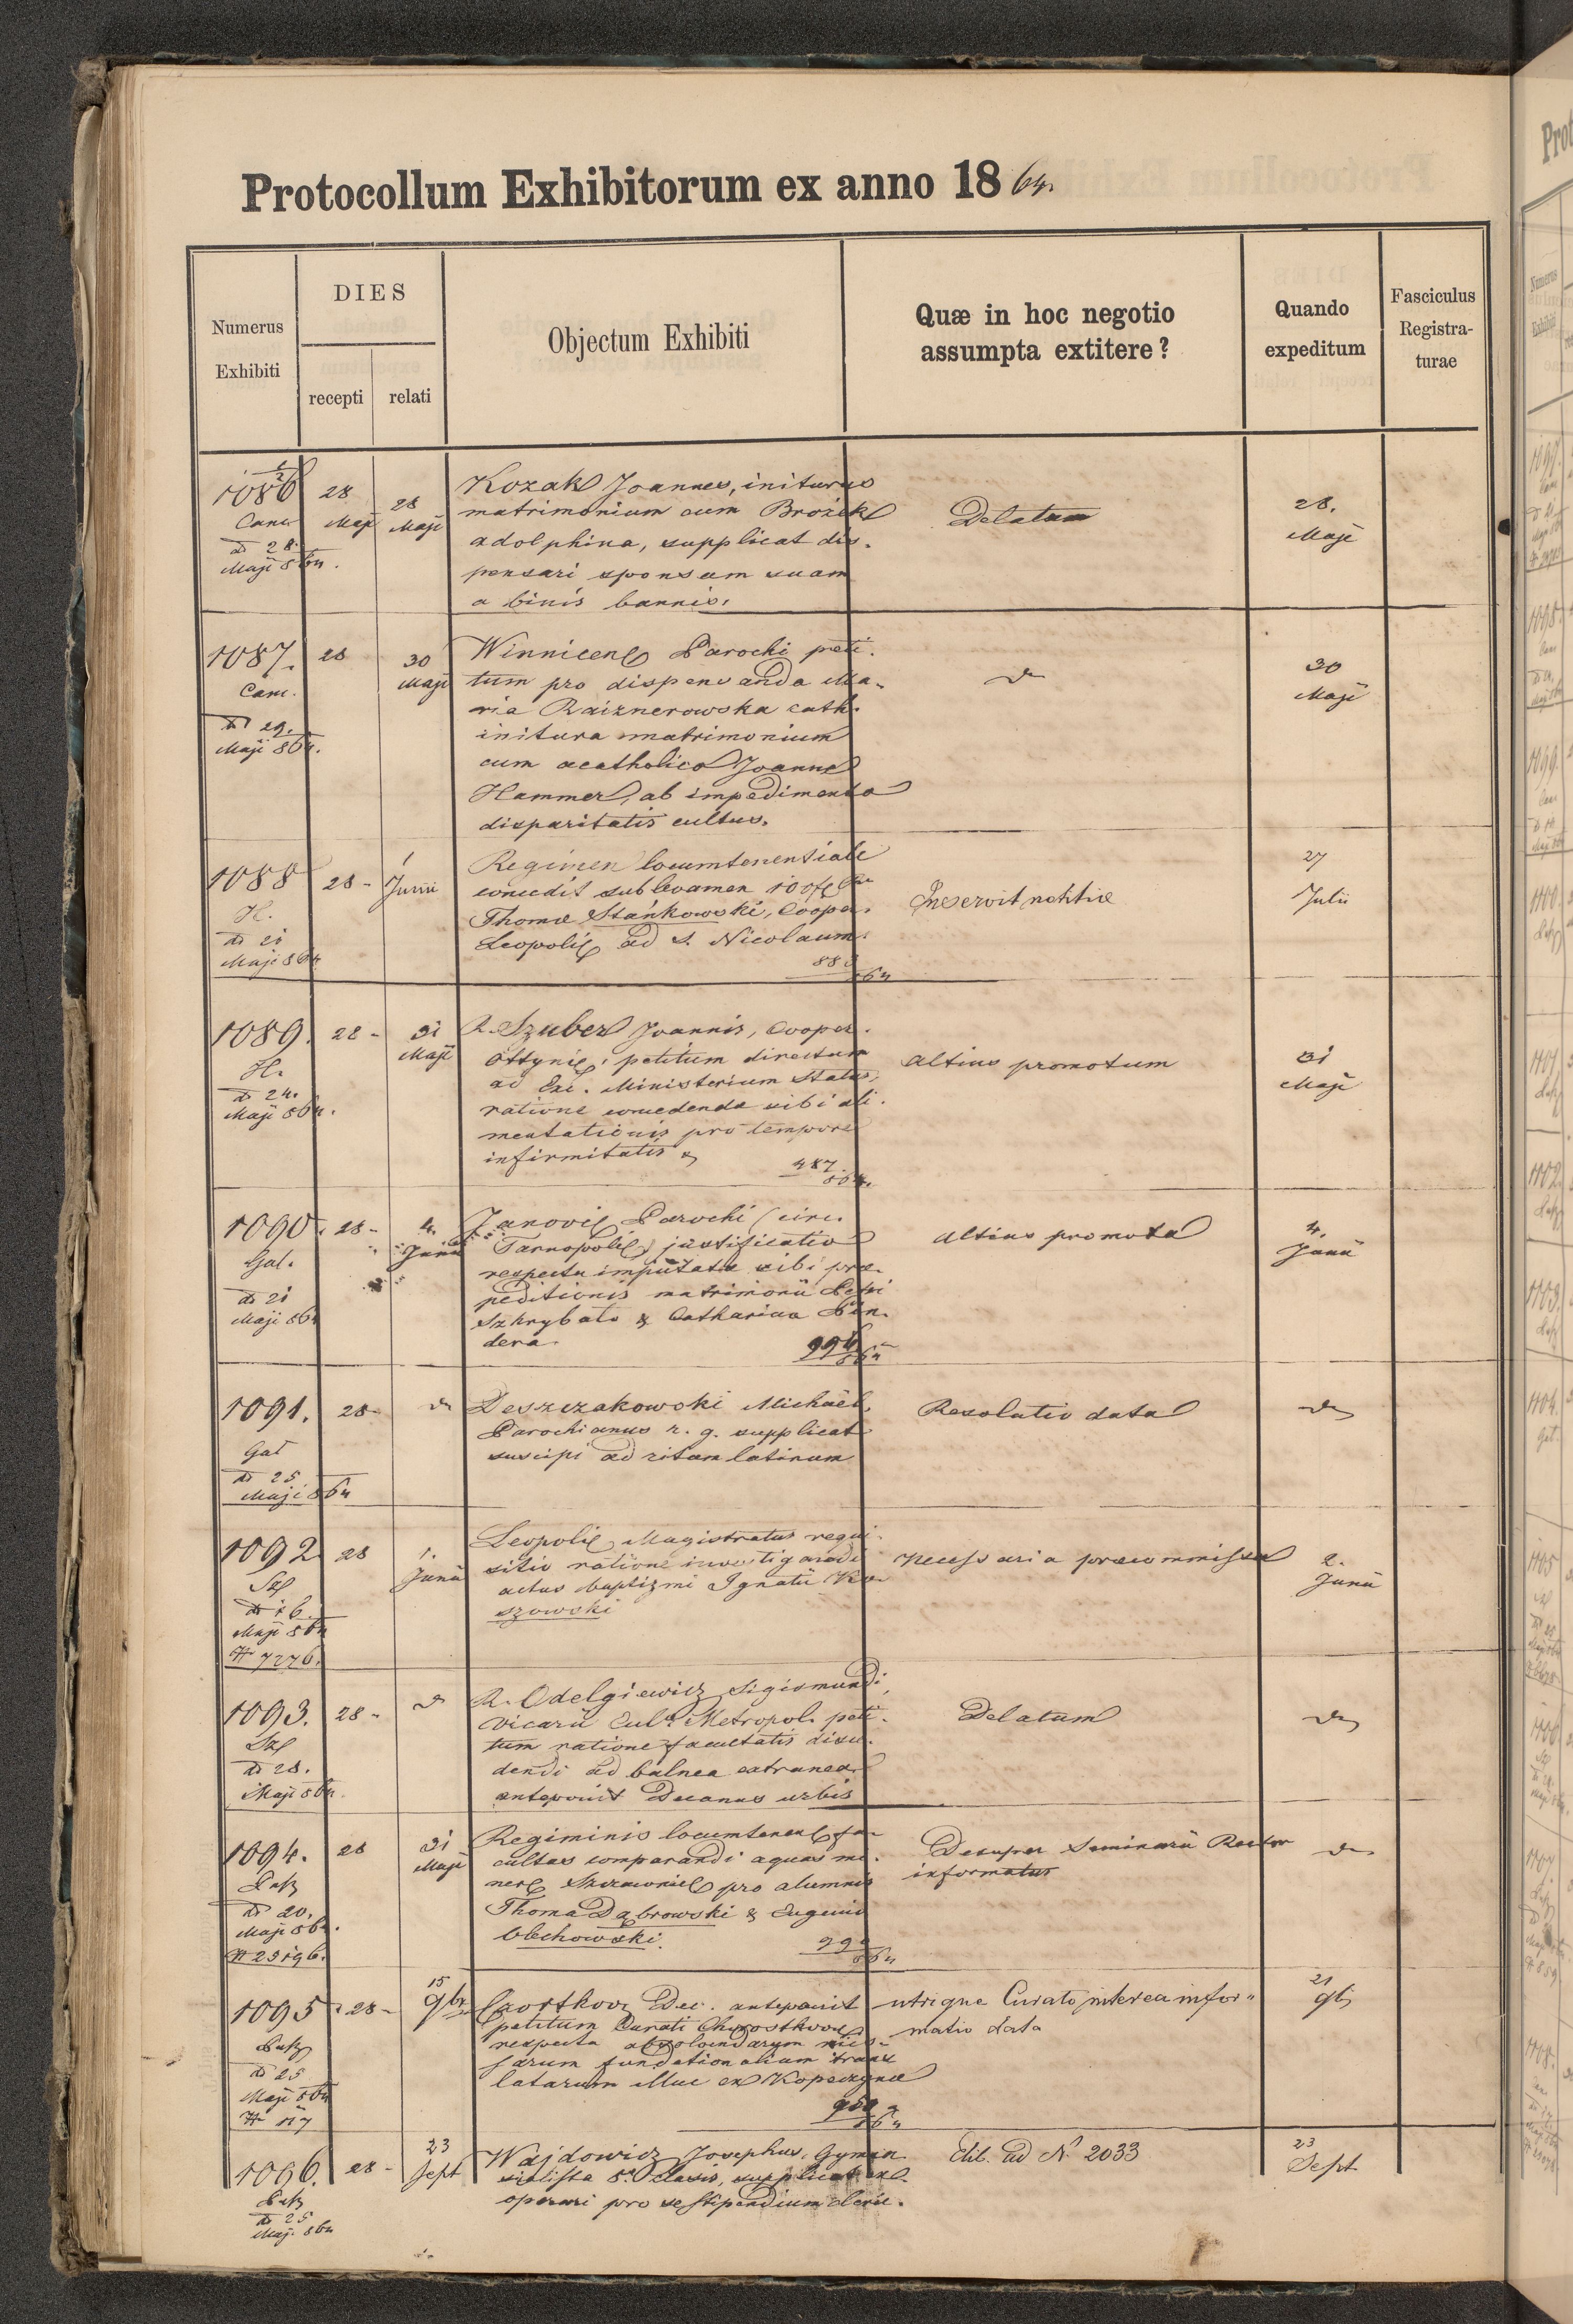 Protocollum Exhibitorum ex anno 1864.
Numerus Exhibiti
DIES
recepti
relati
Objectum Exhibiti
Quæ in hoc negotio
assumpta extitere?
Quando
expeditum
Fasciculus
Registra-
turae
1086
Canc
dd 28.
Maji 864.
28
Maji
28
Maji
Kozak Joannes, initurus
matrimonium cum Brożek
adolphina, supplicat dis-
pensari sponsam suam
a binis bannis.
Delatum
28.
Maji
1087.
Canc.
dd 29.
Maji 864.
28
30
Maji
Winnicens Parochi peti-
tum pro dispensanda Ma-
ria Raiznerowska cath.
initura matrimonium
cum acatholico Joanne
Hammer, ab impedimento
disparitatis cultus.
do
30
Maji
1088
H.
dd 21
Maji 864
28-
1
Junii
Regimen locumtenentiale
concedit sublevamen 100 f
Thomæ Stańkowski, Cooper.
Leopoli ad S. Nicolaum.
864
Inservit notitiæ
27
Julii
1089.
H.
dd 24.
Maji 864.
28-
31
Maji
R. Szuber Joannis, Cooper.
Ottynie, petitum directum
ad Exc. Ministerium Status,
ratione concedendæ sibi ali-
mentationis pro tempore
infirmitatis
487.
864.
altius promotum
31
Maji
1090.
Gat.
dd 21
Maji 864
28-
4.
Junii
Janovie Parochi (circ.
Tarnopolie) justificatio
respectu imputatæ sibi præ-
peditionis matrimonii Petri
Szkrybato & Catharina Pin-
dera.
994
864
altius promota
4.
Junii
1091.
Gat
dd 25
Maji 864
28-
do
Deszczakowski Michaël,
Parochianus r. g. supplicat
suscipi ad ritum latinum
Resolutio data
do
1092
dd 16.
Maji 864
N 7276.
28
1.
Junii
Leopolie Magistratus requi-
sitio ratione investigandi
actus baptizmi Ignatii Ko-
szowski
necessaria præcommissa
2.
Junii
1093.
dd 28.
Maji 864.
28-
do
R. Odelgiewicz Sigismundi,
Vicarii Metropol. peti-
tum ratione facultatis disce-
dendi ad balnea extranea
anteponit Decanus urbis
Delatum
do
1094.
dd 20.
Maji 864.
N 29196.
28
31
Maji
Regiminis locumtenens fa-
cultas comparandi aquas mi-
ner pro alumnis
Thoma Dąbrowski & Eugenio
Olechowski.
864
Desuper Seminarii Rector
informatus
do
1095.
dd 25
Maji 864
N 117
28-
15
9br
Czortkov Dec. anteponit
petitum Curati Chorostkov
respectu absolvendarum mis-
sarum fundationalium trans
latarum illuc ex Kopeczynce
950
864
utrique Curato interea infor-
matio data
21
9b
1096.
dd 25
Maji 864
28-
23
Sept
Wajdowicz Josephus, Gymna-
sialista 8ae classis, supplicat ex-
operari pro se stipendium cleric.
Exh. ad N 2033
23
Sept